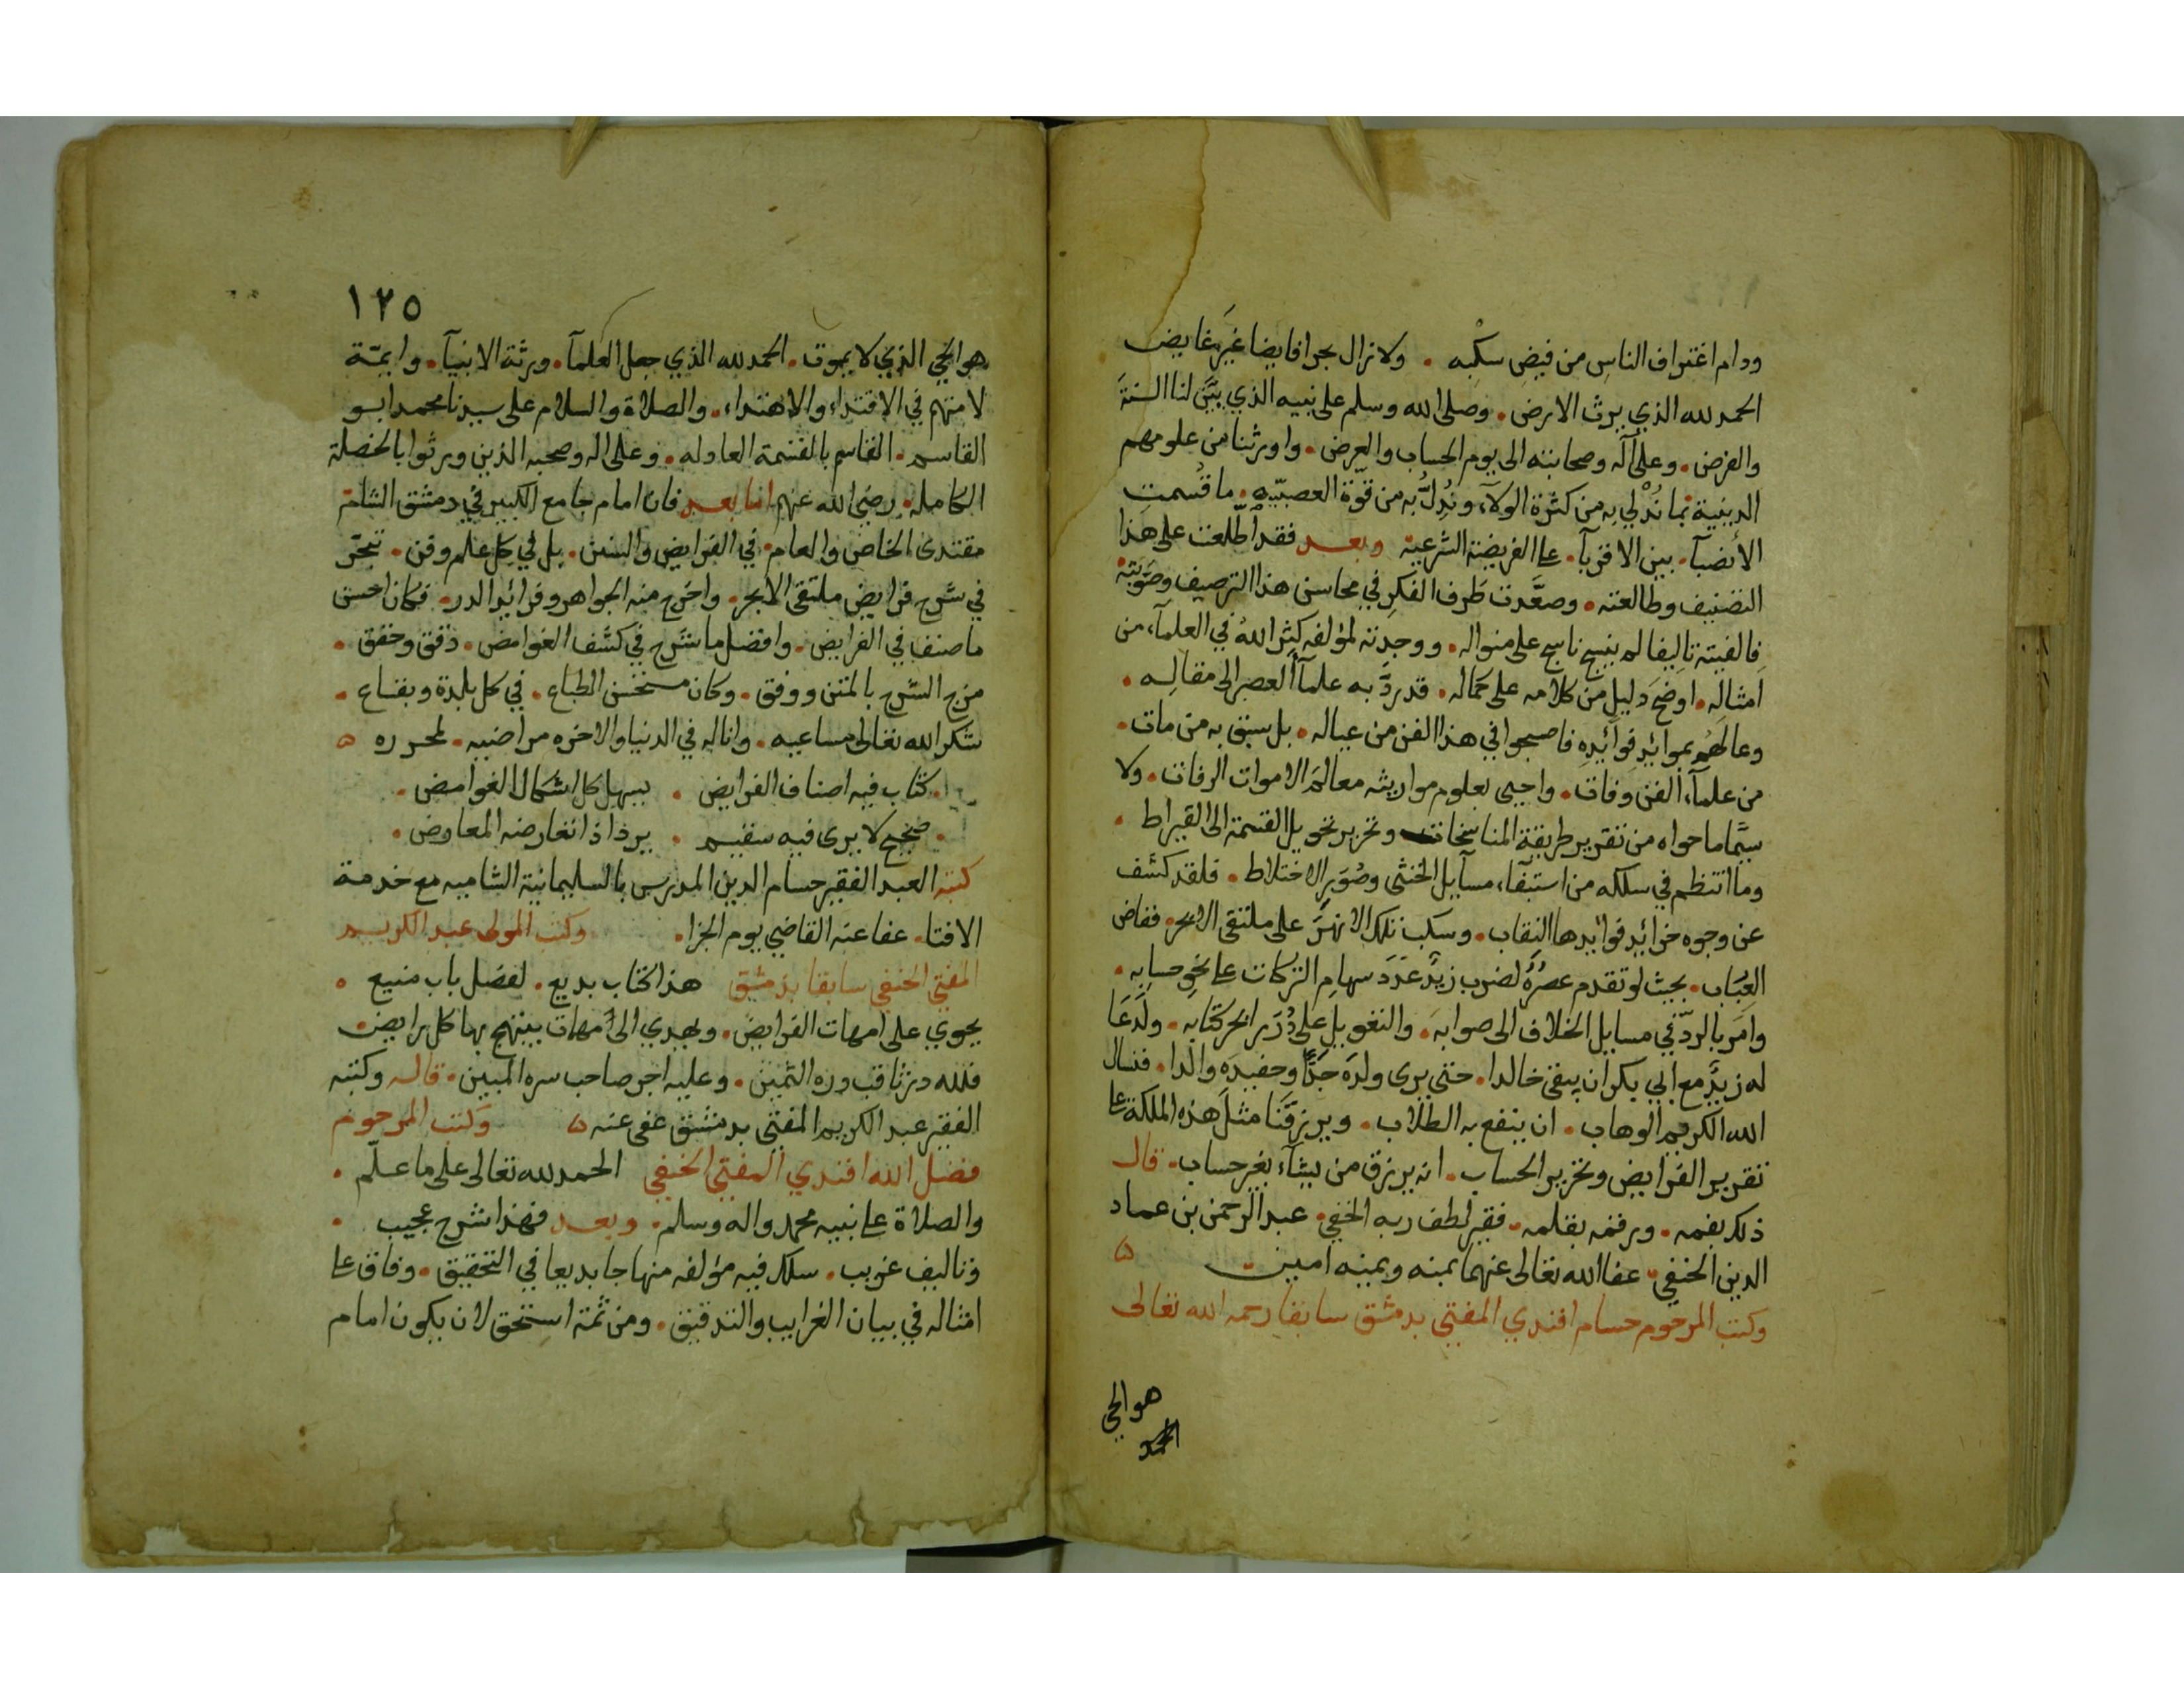 ودام اغتراف الناس من فيض سكبه . ولا زال بحرا فايضا غير غايض
الحمد لله الذي يرث الارض . وصلى الله وسلم على نبيه الذي بيّن لنا السنة
والفرض . وعلى آله وصحابته الى يوم الحساب والعرض . واورثنا من علومهم
الدينية بما نُدْلي به من كثرة الولاء ونُدِلُّ به من قوّة العصبيّه . ما قُسمت
الأنصبآ . بين الاقربآ . على الفريضة الشرعية وبعد فقد اطّلعت على هذا
التصنيف وطالعته . وصعّدت طرف الفكر في محاسن هذا الترصيف وصوّبته
فالفيته تاليفا لم ينسج ناسج على منواله . ووجدته لمؤلفه كثر الله في العلمآء من
امثاله . اوضح دليل من كلامه على كماله . قد ردّ به علمآء العصر الى مقاله .
وعالهُم بموائد فوائده فاصبحوا في هذا الفن من عياله . بل سبق به من مات .
من علمآء الفن وفات . واحيى بعلوم مواريثه معالم الاموات الرفات . ولا
سيّما ما حواه من تقرير طريقة المناسخات وتحرير تحويل القسمة الى القيراط .
وما انتظم في سلكه من استيفآء مسآيل الخنثى وصُوَر الاختلاط . فلقد كشف
عن وجوه خرائد فوائدها النقاب . وسكب تلك الانهر على ملتقى الابحر . ففاض
العباب . بحيث لو تقدم عصرُهُ لضرب زيدٌ عَدَدَ سهام التركات على نحو حسابه .
وامر بالردّ في مسايل الخلاف الى صوابه . والتعويل على دُرَر ابحر كتابه . ولدَعَا
له زيدٌ مع ابي بكر ان يبقى خالدا . حتى يرى ولدَه جَدًّا وحفيدَه والدا . فنسال
الله الكريم الوهاب . ان ينفع به الطلاب . ويرزقنا مثل هذه الملكة على
تقرير الفرايض وتحرير الحساب . انه يرزق من يشآء بغير حساب . قال
ذلك بفمه . ورقمه بقلمه . فقير لطف ربه الخفي . عبد الرحمن بن عماد
الدين الحنفي . عفا الله تعالى عنهما بمنه ويمنه امين
وكتب المرحوم حسام افندي المفتي بدمشق سابقا رحمه الله تعالى
هو الحي
الحمد
١٢٥
هو الحي الذي لا يموت . الحمد لله الذي جعل العلمآ . ورثة الانبيآ . وايمّة
لامتهم في الاقتداء والاهتداء . والصلاة والسلام على سيدنا محمد ابو
القاسم . القاسم بالقسمة العادله . وعلى اله وصحبه الذين ورثوا بالخصلة
الكامله . رضي الله عنهم اما بعد فان امام جامع الكبير في دمشق الشام
مقتدى الخاص والعام . في الفرايض والسنن . بل في كل علم وفن . تبحّر
في شرح فرايض ملتقى الابحر . واخرج منه الجواهر وفرائد الدرر . فكان احسن
ما صنف في الفرايض . وافضل ما شرح في كشف الغوامض . دقق وحقق .
مزج الشرح بالمتن ووفق . وكان مستحسن الطباع . في كل بلدة وبقاع .
شكر الله تعالى مساعيه . واناله في الدنيا والاخره مراضيه . لمحرره ه
. كتاب فيه اصناف الفرايض . يسهل كل اشكال الغوامض .
. صحيح لا يرى فيه سقيم . يرد اذا تعارضه المعارض .
كتبه العبد الفقير حسام الدين المدرس بالسليمانية الشاميه مع خدمة
الافتا . عفا عنه القاضي يوم الجزا . وكتب المولى عبد الكريم
المفتي الحنفي سابقا بدمشق هذا كتاب بديع . لفضل باب منيع .
يحوي على امهات الفرايض . ويهدي الى أمهات يبتهج بها كل رايض
فلله در ثاقب دره الثمين . وعليه اجر صاحب سره المبين . قاله وكتبه
الفقير عبد الكريم المفتي بدمشق عفي عنه ه وكتب المرحوم
فضل الله افندي المفتي الحنفي الحمد لله تعالى على ما علّم .
والصلاة على نبيه محمد واله وسلم . وبعد فهذا شرح عجيب .
وتاليف غريب . سلك فيه مؤلفه منهاجا بديعا في التحقيق . وفاق على
امثاله في بيان الغرايب والتدقيق . ومن ثمة استحق لان يكون امام